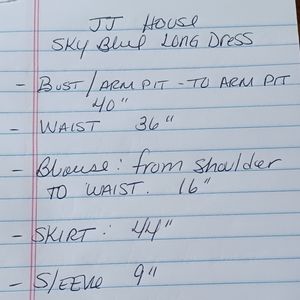 JJ House
Sky Blue Long Dress
- Bust/Arm Pit - To Arm Pit
40"
- Waist 36"
- Blouse: from shoulder
To Waist. 16"
- Skirt: 44"
- Sleeve 9"